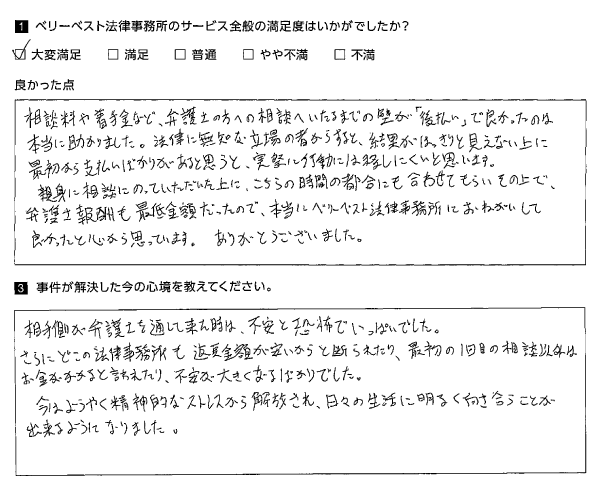 1 ベリーベスト法律事務所のサービス全般の満足度はいかがでしたか？
☑ 大変満足 □ 満足 □ 普通 □ やや不満 □ 不満
良かった点
相談料や着手金など、弁護士の方への相談へいたるまでの壁が「後払い」で良かったのは
本当に助かりました。法律に無知な立場の者からすると、結果がはっきりと見えない上に
最初から支払いばかりがあると思うと、実際に行動には移しにくいと思います。
親身に相談にのっていただいた上に、こちらの時間の都合にも合わせてもらいその上で、
弁護士報酬も最低金額だったので、本当にベリーベスト法律事務所におねがいして
良かったと心から思っています。 ありがとうございました。
3 事件が解決した今の心境を教えてください。
相手側が弁護士を通して来た時は、不安と恐怖でいっぱいでした。
さらにどこの法律事務所も返還金額が安いからと断られたり、最初の1回目の相談以外は
お金がかかると言われたり、不安が大きくなるばかりでした。
今はようやく精神的なストレスから解放され、日々の生活に明るく向き合うことが
出来るようになりました。